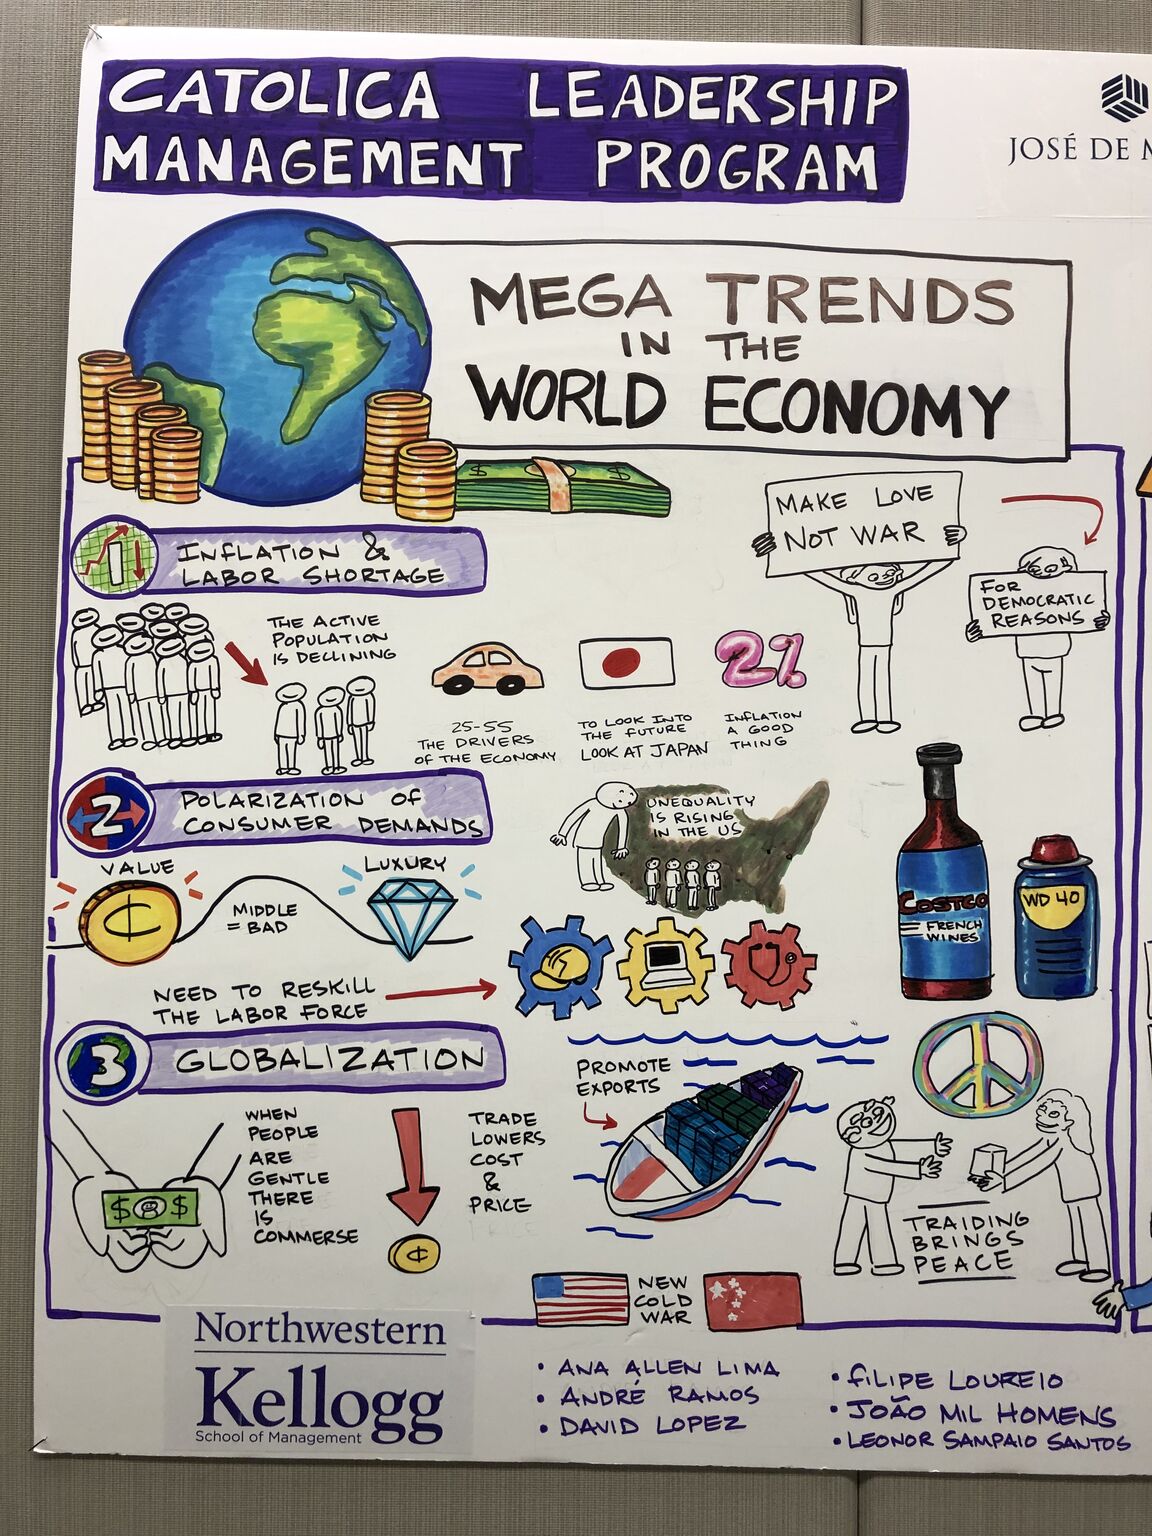 CATOLICA LEADERSHIP
MANAGEMENT PROGRAM
JOSÉ DE
MEGA TRENDS
IN THE
WORLD ECONOMY
INFLATION &
LABOR SHORTAGE
THE ACTIVE
POPULATION
IS DECLINING
25-55
THE DRIVERS
OF THE ECONOMY
TO LOOK INTO
THE FUTURE
LOOK AT JAPAN
2%
INFLATION
A GOOD
THING
MAKE LOVE
NOT WAR
FOR
DEMOCRATIC
REASONS
2
POLARIZATION OF
CONSUMER DEMANDS
VALUE
¢
MIDDLE
= BAD
LUXURY
UNEQUALITY
IS RISING
IN THE US
NEED TO RESKILL
THE LABOR FORCE
COSTCO
FRENCH
WINES
WD 40
3
GLOBALIZATION
WHEN
PEOPLE
ARE
GENTLE
THERE
IS
COMMERSE
$ $
¢
TRADE
LOWERS
COST
&
PRICE
PROMOTE
EXPORTS
TRAIDING
BRINGS
PEACE
NEW
COLD
WAR
Northwestern
Kellogg
School of Management
• ANA ALLEN LIMA
• ANDRÉ RAMOS
• DAVID LOPEZ
• FILIPE LOUREIO
• JOÃO MIL HOMENS
• LEONOR SAMPAIO SANTOS